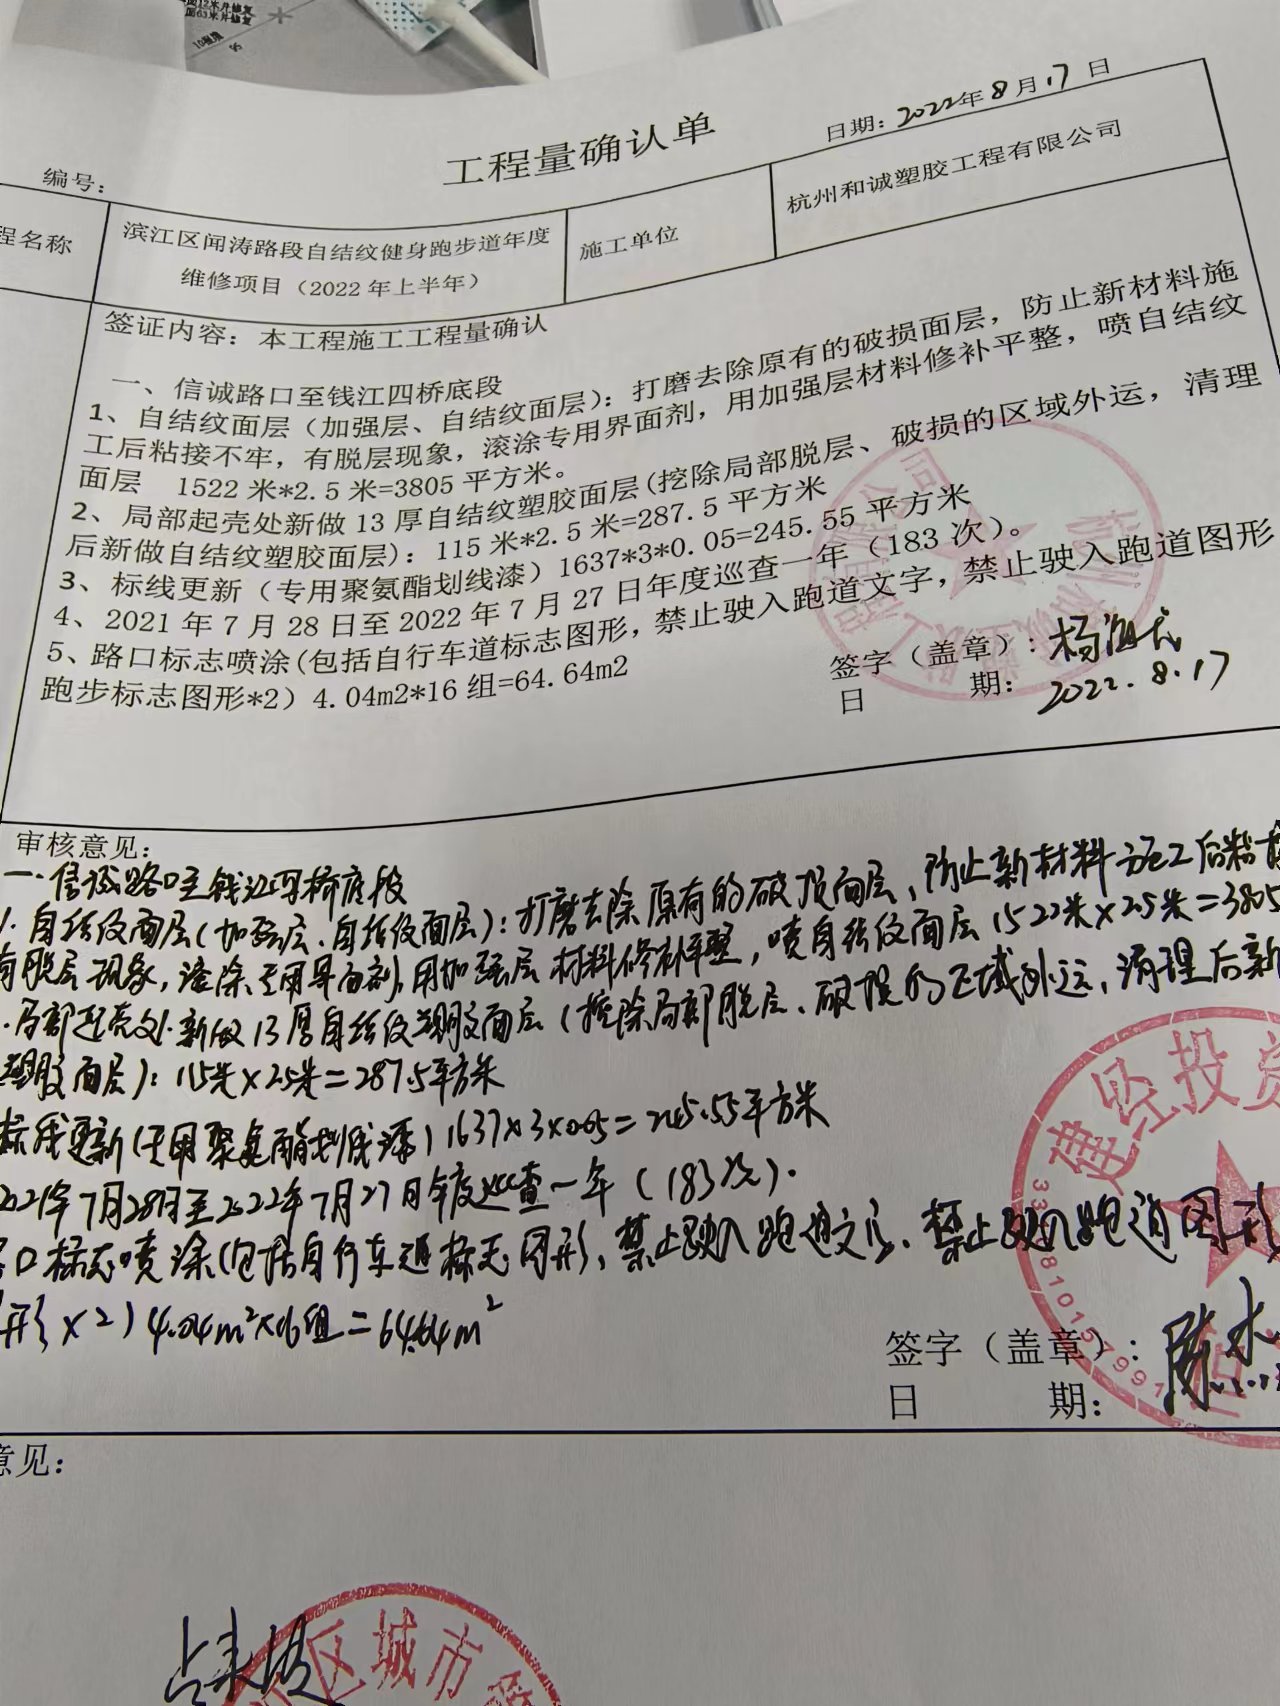 面12米片修复
面63米片修复
95
工程量确认单
编号：
日期：2022年8月17日
程名称
滨江区闻涛路段自结纹健身跑步道年度
维修项目（2022年上半年）
施工单位
杭州和诚塑胶工程有限公司
签证内容：本工程施工工程量确认
一、信诚路口至钱江四桥底段
1、自结纹面层（加强层、自结纹面层）：打磨去除原有的破损面层，防止新材料施
工后粘接不牢，有脱层现象，滚涂专用界面剂，用加强层材料修补平整，喷自结纹
面层 1522米*2.5米=3805平方米。
2、局部起壳处新做13厚自结纹塑胶面层(挖除局部脱层、破损的区域外运，清理
后新做自结纹塑胶面层）：115米*2.5米=287.5平方米
3、标线更新（专用聚氨酯划线漆）1637*3*0.05=245.55平方米
4、2021年7月28日至2022年7月27日年度巡查一年（183次）。
5、路口标志喷涂(包括自行车道标志图形，禁止驶入跑道文字，禁止驶入跑道图形
跑步标志图形*2）4.04m2*16组=64.64m2
签字（盖章）：
日 期：2022.8.17
审核意见：
一.信诚路口至钱江四桥底段
1.自结纹面层(加强层.自结纹面层)：打磨去除原有的破损面层、防止新材料施工后粘接
有脱层现象，滚涂专用界面剂,用加强层材料修补平整，喷自结纹面层1522米×2.5米=3805
.局部起壳处.新做13厚自结纹塑胶面层(挖除局部脱层、破损的区域外运、清理后新
塑胶面层)：115米×2.5米=287.5平方米
标线更新(专用聚氨酯划线漆)1637×3×0.05=245.55平方米
2021年7月28日至2022年7月27日年度巡查一年(183次).
口标志喷涂(包括自行车道标志图形，禁止驶入跑道文字、禁止驶入跑道图形
形×2)4.04m²×16组=64.64m²
建设投资
签字（盖章）：
日 期：
意见：
区城市